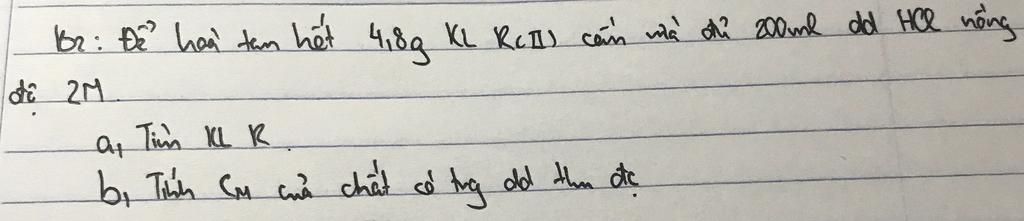 B2: Để hoà tan hết 4,8g KL R(II) cần vừa đủ 200ml dd HCl nồng
độ 2M
a, Tìm KL R.
b, Tính CM của chất có trg dd thu đc